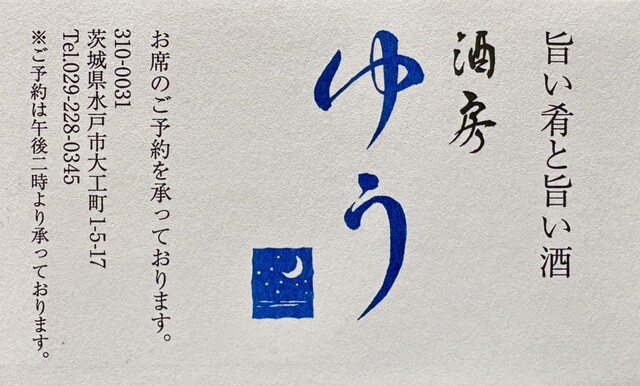 旨い肴と旨い酒
酒房
ゆう
お席のご予約を承っております。
310-0031
茨城県水戸市大工町1-5-17
Tel.029-228-0345
※ご予約は午後二時より承っております。